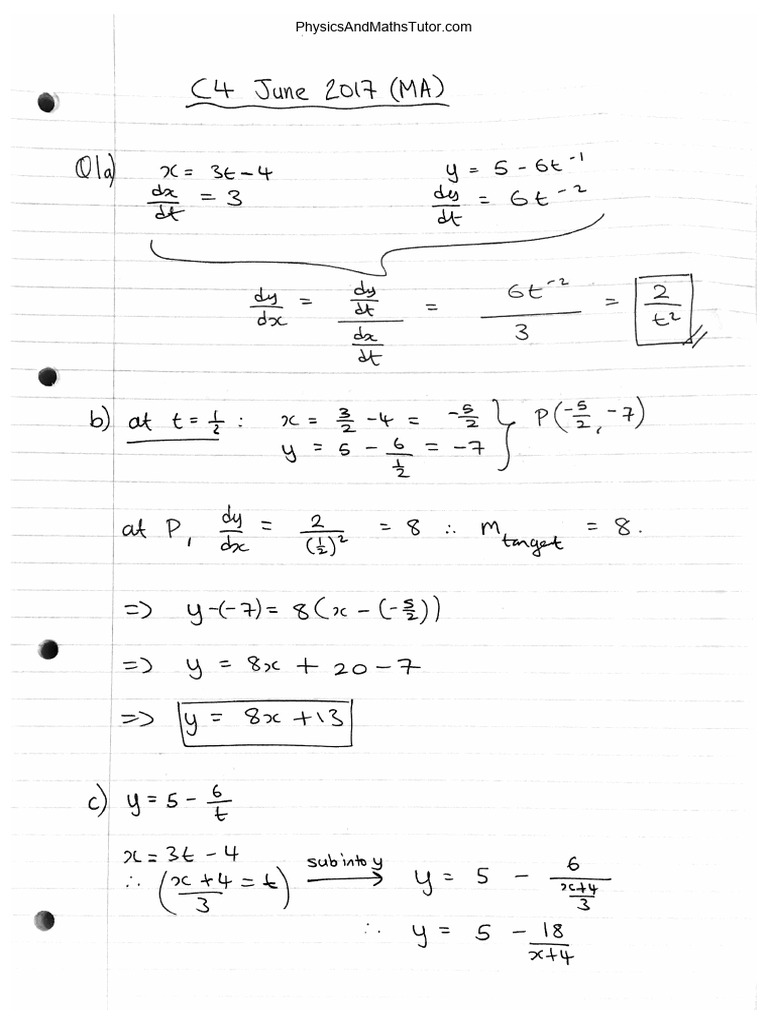 PhysicsAndMathsTutor.com
C4 June 2017 (MA)
Q1a) x = 3t - 4    y = 5 - 6t⁻¹
dx/dt = 3    dy/dt = 6t⁻²
dy/dx = (dy/dt)/(dx/dt) = 6t⁻²/3 = 2/t²
b) at t = 1/2 : x = 3/2 - 4 = -5/2 } P(-5/2, -7)
y = 5 - 6/(1/2) = -7
at P, dy/dx = 2/(1/2)² = 8 ∴ m_tanget = 8.
=> y-(-7) = 8(x - (-5/2))
=> y = 8x + 20 - 7
=> y = 8x + 13
c) y = 5 - 6/t
x = 3t - 4
∴ ((x+4)/3 = t) sub into y → y = 5 - 6/((x+4)/3)
∴ y = 5 - 18/(x+4)